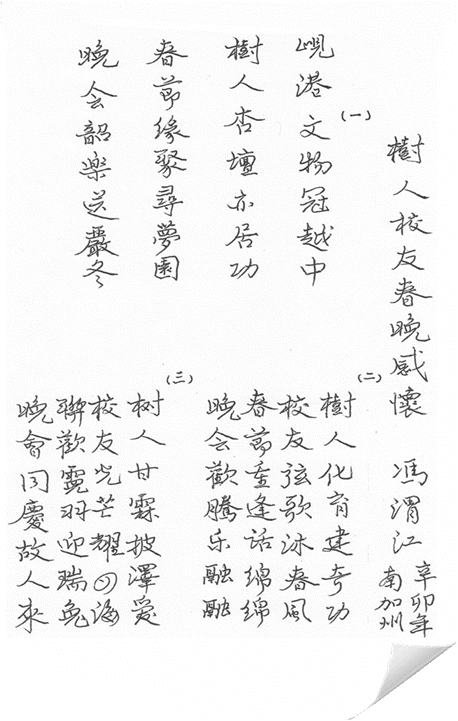 樹人校友春晚感懷 馮渭江 辛卯年
南加州
(一)
峴港文物冠越中
樹人杏壇亦居功
春節緣聚尋夢園
晚会韶樂送嚴冬
(二)
樹人化育建奇功
校友弦歌沐春風
春節重逢话綿綿
晚会歡騰乐融融
(三)
树人甘霖披澤愛
校友光芒耀四海
聯歡霓羽迎瑞兔
晚會同慶故人來